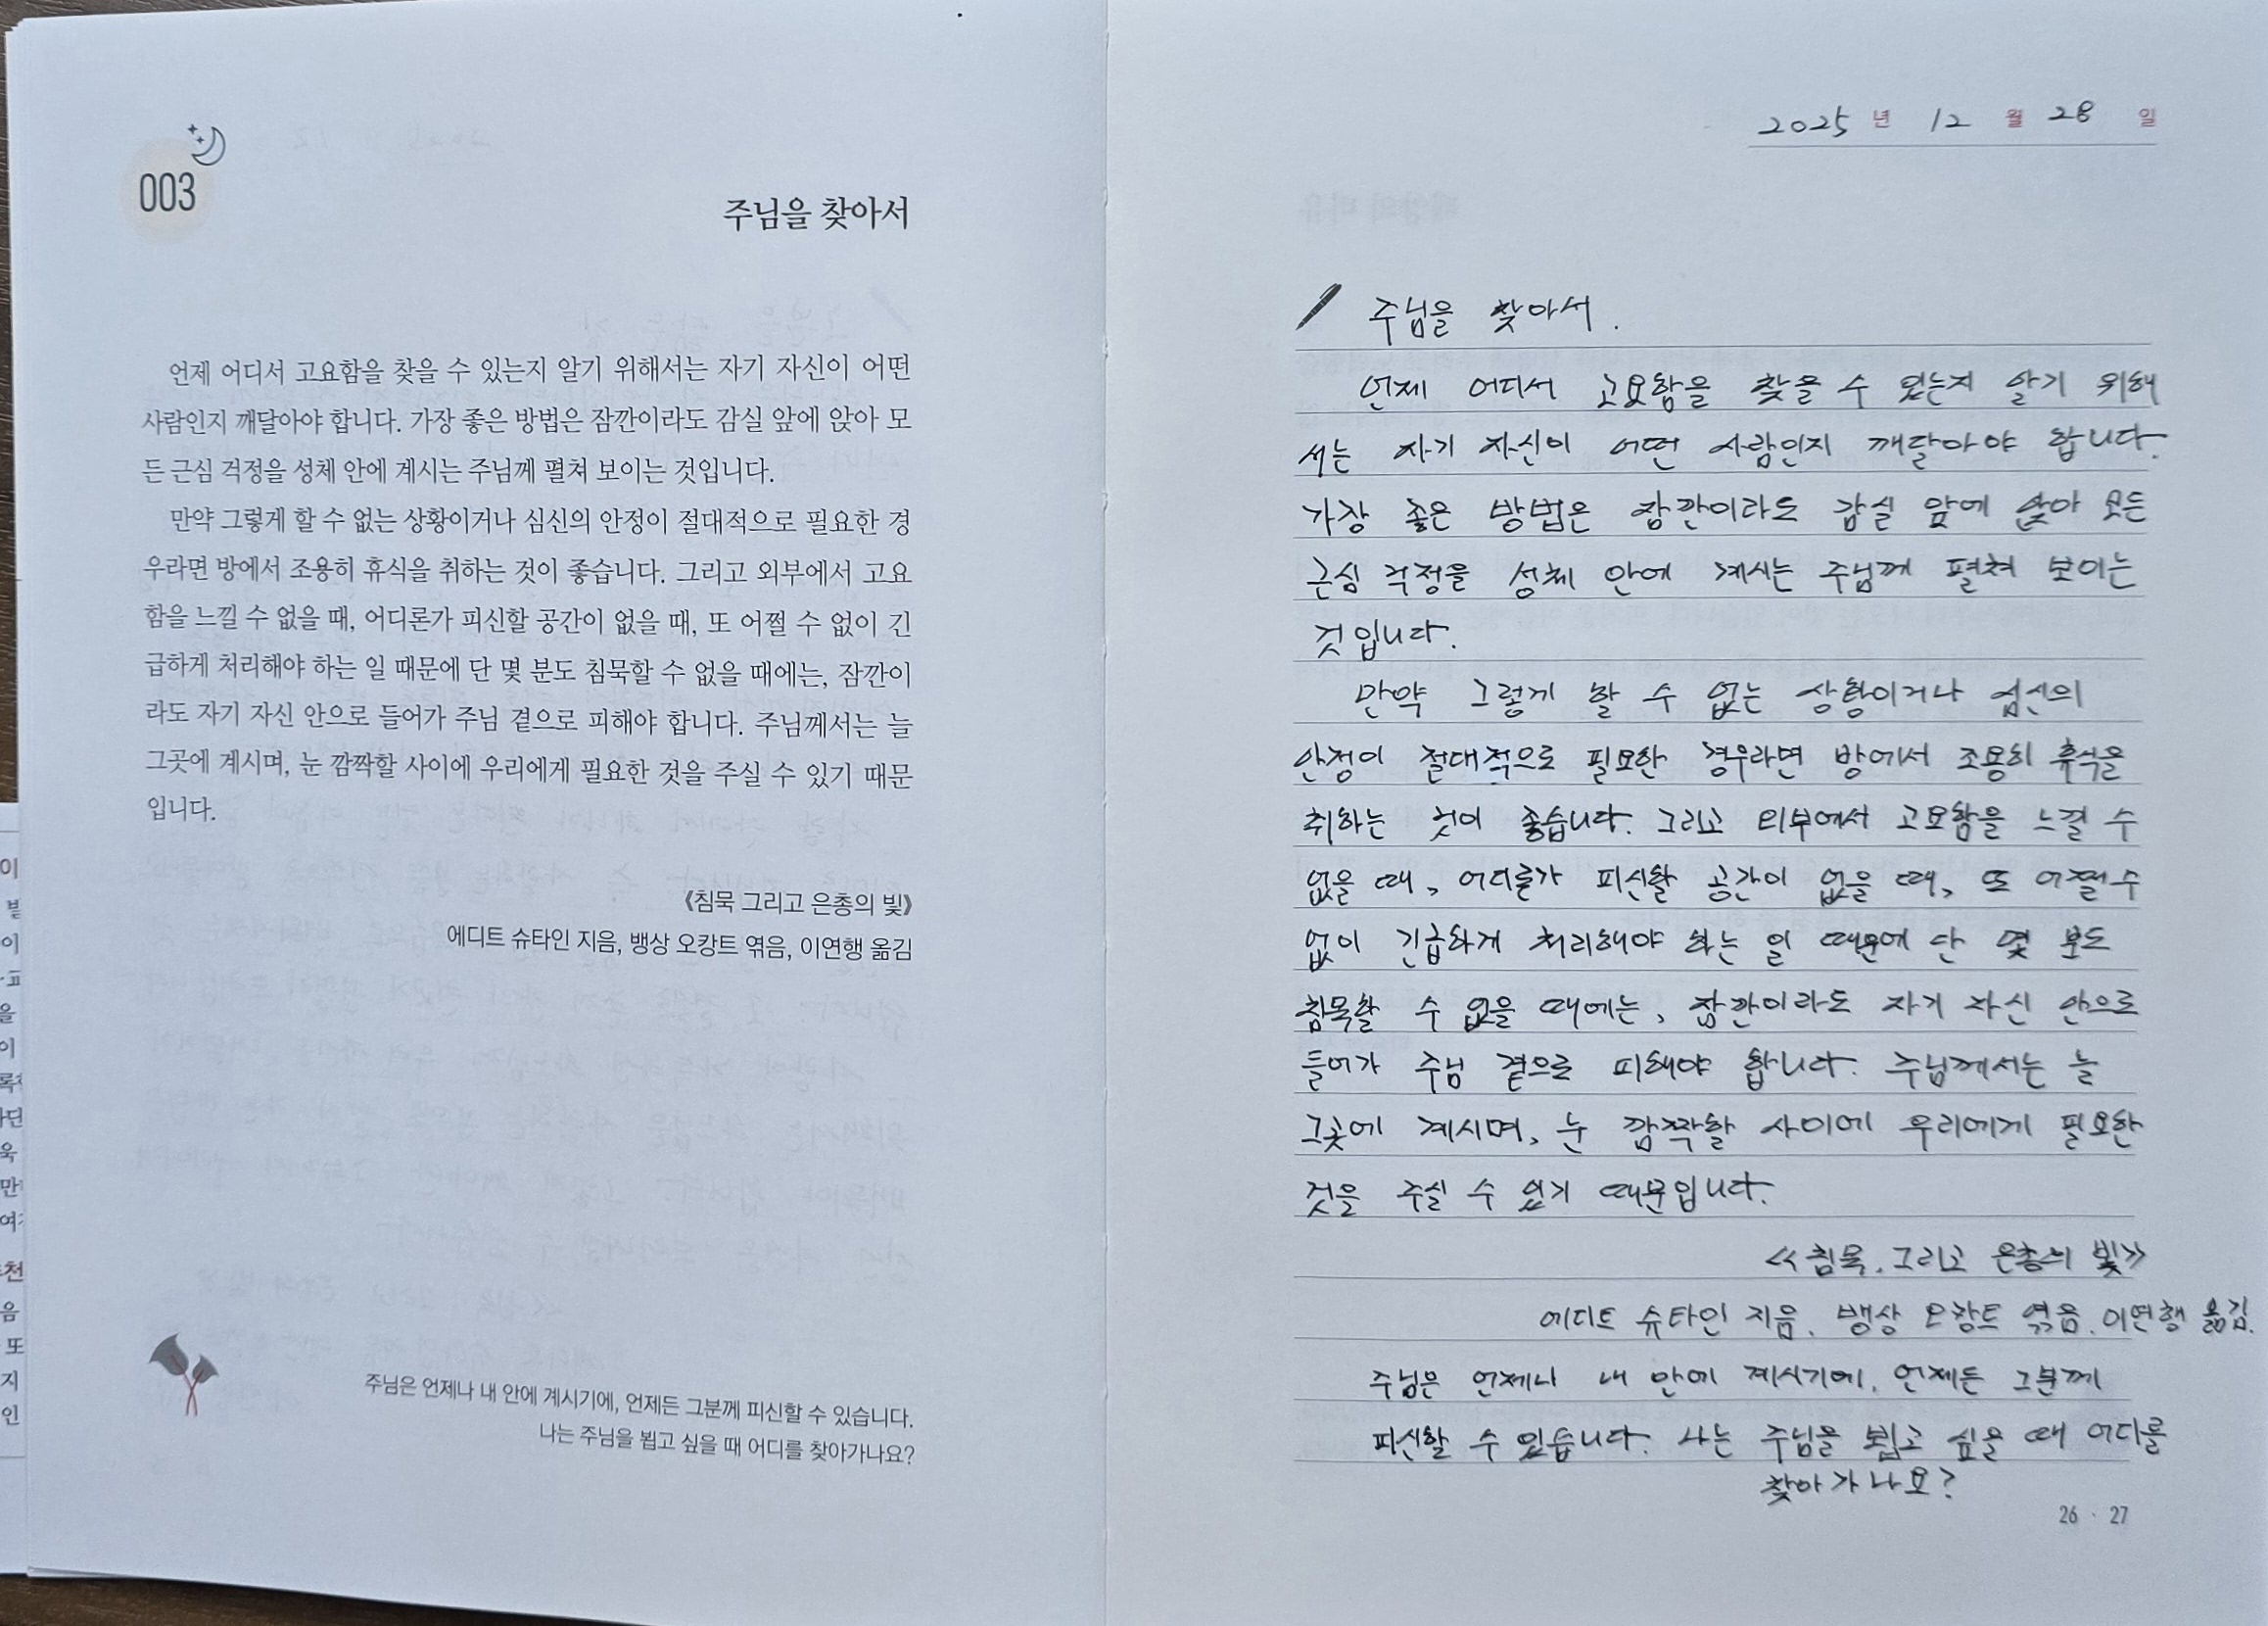 003
주님을 찾아서
언제 어디서 고요함을 찾을 수 있는지 알기 위해서는 자기 자신이 어떤
사람인지 깨달아야 합니다. 가장 좋은 방법은 잠깐이라도 감실 앞에 앉아 모
든 근심 걱정을 성체 안에 계시는 주님께 펼쳐 보이는 것입니다.
만약 그렇게 할 수 없는 상황이거나 심신의 안정이 절대적으로 필요한 경
우라면 방에서 조용히 휴식을 취하는 것이 좋습니다. 그리고 외부에서 고요
함을 느낄 수 없을 때, 어디론가 피신할 공간이 없을 때, 또 어쩔 수 없이 긴
급하게 처리해야 하는 일 때문에 단 몇 분도 침묵할 수 없을 때에는, 잠깐이
라도 자기 자신 안으로 들어가 주님 곁으로 피해야 합니다. 주님께서는 늘
그곳에 계시며, 눈 깜짝할 사이에 우리에게 필요한 것을 주실 수 있기 때문
입니다.
《침묵 그리고 은총의 빛》
에디트 슈타인 지음, 뱅상 오캉트 엮음, 이연행 옮김
주님은 언제나 내 안에 계시기에, 언제든 그분께 피신할 수 있습니다.
나는 주님을 뵙고 싶을 때 어디를 찾아가나요?
2025 년 12 월 28 일
주님을 찾아서.
언제 어디서 고요함을 찾을 수 있는지 알기 위해
서는 자기 자신이 어떤 사람인지 깨달아야 합니다.
가장 좋은 방법은 잠깐이라도 감실 앞에 앉아 모든
근심 걱정을 성체 안에 계시는 주님께 펼쳐 보이는
것입니다.
만약 그렇게 할 수 없는 상황이거나 심신의
안정이 절대적으로 필요한 경우라면 방에서 조용히 휴식을
취하는 것이 좋습니다. 그리고 외부에서 고요함을 느낄 수
없을 때, 어디를가 피신할 공간이 없을 때, 또 어쩔 수
없이 긴급하게 처리해야 하는 일 때문에 단 몇 분도
침묵할 수 없을 때에는, 잠깐이라도 자기 자신 안으로
들어가 주님 곁으로 피해야 합니다. 주님께서는 늘
그곳에 계시며, 눈 깜짝할 사이에 우리에게 필요한
것을 주실 수 있기 때문입니다.
<<침묵. 그리고 은총의 빛>>
에디트 슈타인 지음. 뱅상 오캉트 엮음. 이연행 옮김.
주님은 언제나 내 안에 계시기에. 언제든 그분께
피신할 수 있습니다. 나는 주님을 뵙고 싶을 때 어디를
찾아가나요?
26 · 27